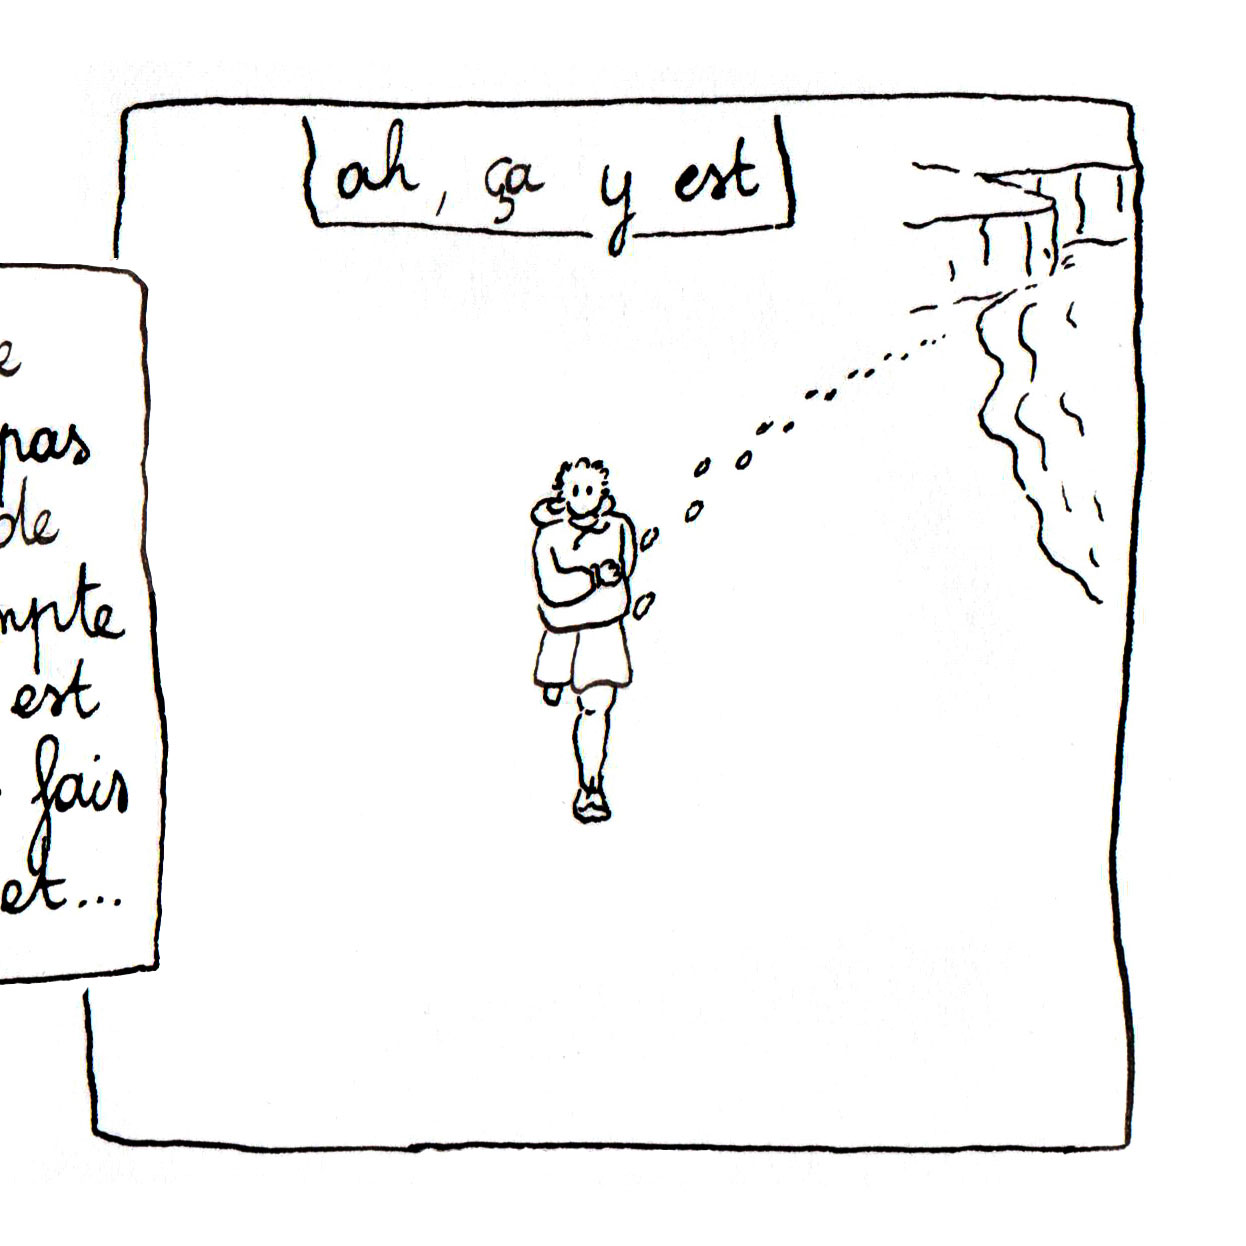 ah, ça y est
pas
de
est
fais
et...